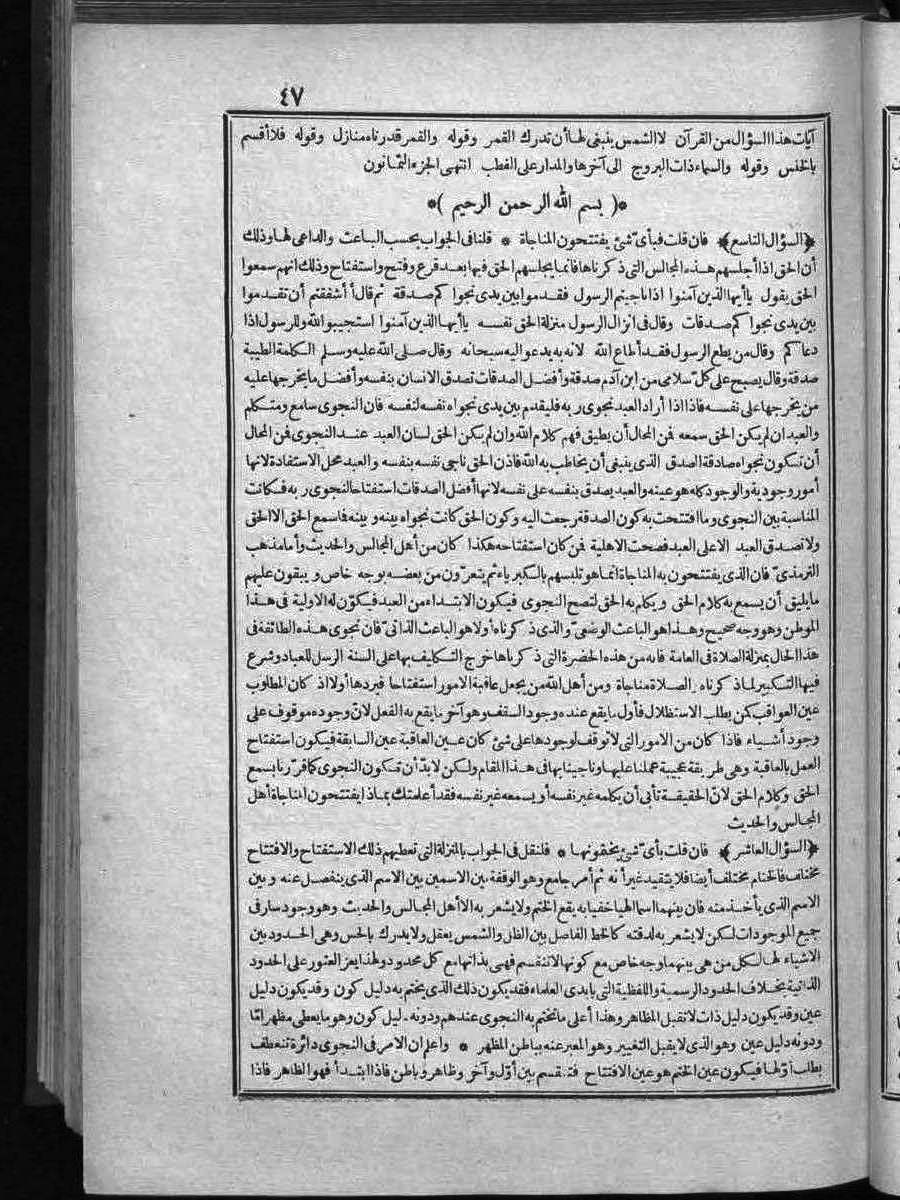 ٤٧
آيات هذا السؤال من القرآن لا الشمس ينبغى لها أن تدرك القمر وقوله والقمر قدرناه منازل وقوله فلا أقسم
بالخنس وقوله والسماء ذات البروج الى آخرها والمدار على القطب انتهى الجزء الثمانون
*( بسم الله الرحمن الرحيم )*
﴿السؤال التاسع﴾ فان قلت فبأى شئ يفتتحون المناجاة * قلنا فى الجواب بحسب الباعث والداعى لها وذلك
أن الحق اذا أجلسهم هذه المجالس التى ذكرناها فانما يجلسهم الحق فيها بعد قرع وفتح واستفتاح وذلك انهم سمعوا
الحق يقول يا أيها الذين آمنوا اذا ناجيتم الرسول فقدموا بين يدى نجواكم صدقة ثم قال أأشفقتم أن تقدموا
بين يدى نجواكم صدقات وقال فى انزال الرسول منزلة الحق نفسه يا أيها الذين آمنوا استجيبوا لله وللرسول اذا
دعاكم وقال من يطع الرسول فقد أطاع الله لانه به يدعو اليه سبحانه وقال صلى الله عليه وسلم الكلمة الطيبة
صدقة وقال يصبح على كل سلامى من ابن آدم صدقة وأفضل الصدقات تصدق الانسان بنفسه وأفضل ما يخرجها عليه
من يخرجها على نفسه فاذا اذا أراد العبد نجوى ربه فليقدم بين يدى نجواه نفسه لنفسه فان النجوى سامع ومتكلم
والعبد ان لم يكن الحق سمعه فمن المحال أن يطيق فهم كلام الله وان لم يكن الحق لسان العبد عند النجوى فمن المحال
أن تكون نجواه صادقة الصدق الذى ينبغى أن يخاطب به الله فاذن الحق ناجى نفسه بنفسه والعبد محل الاستفادة لانها
أمور وجودية والوجود كله هو عينه والعبد يصدق بنفسه على نفسه لانها أفضل الصدقات استفتاحا لنجوى ربه فكانت
المناسبة بين النجوى وما افتتحت به كون الصدقة رجعت اليه وكون الحق كانت نجواه بينه وبينه فما سمع الحق الا الحق
ولا تصدق العبد الا على العبد فصحت الاهلية فمن كان استفتاحه هكذا كان من أهل المجالس والحديث وأما مذهب
الترمذى فان الذى يفتتحون به المناجاة انما هو تلبسهم بالكبرياء ثم يتعرون من بعضه بوجه خاص ويبقون عليهم
ما يليق أن يسمع به كلام الحق ويكلم به الحق لتصح النجوى فيكون الابتداء من العبد فيكون له الاولية فى هذا
الموطن وهو وجه صحيح وهذا هو الباعث الوضعى والذى ذكرناه أولا هو الباعث الذاتى فان نجوى هذه الطائفة فى
هذا الحال بمنزلة الصلاة فى العامة فانه من هذه الحضرة التى ذكرناها خرج التكليف بها على السنة الرسل للعباد وشرع
فيها التكبير لما ذكرناه الصلاة مناجاة ومن أهل الله من يجعل عاقبة الامور استفتاحا فيردها أولا اذ كان المطلوب
عين العواقب كمن يطلب الاستظلال فأول ما يقع عنده وجود السقف وهو آخر ما يقع به الفعل لان وجوده موقوف على
وجود أشياء فاذا كان من الامور التى لا توقف لوجودها على شئ كان عين العاقبة عين السابقة فيكون استفتاح
العمل بالعاقبة وهى طريقة عجيبة عملنا عليها وناجينا بها فى هذا المقام ولكن لا بد أن تكون النجوى كما قررنا بسمع
الحق وكلام الحق لان الحقيقة تأبى أن يكلمه غير نفسه أو يسمعه غير نفسه فقد أعلمتك بماذا يفتتحون المناجاة أهل
المجالس والحديث
﴿السؤال العاشر﴾ فان قلت بأى شئ يختمونها * فلنقل فى الجواب بالمنزلة التى تعطيهم ذلك الاستفتاح والافتتاح
مختلف فالختام مختلف أيضا فلا يتقيد غير أنه ثم أمر جامع وهو الوقفة بين الاسمين بين الاسم الذى ينفصل عنه وبين
الاسم الذى يأخذ منه فان بينهما اسما الهيا خفيا به يقع الختم ولا يشعر به الا أهل المجالس والحديث وهو وجود سار فى
جميع الموجودات لكن لا يشعر به لدقته كالخط الفاصل بين الظل والشمس يعقل ولا يدرك بالحس وهى الحدود بين
الاشياء لها لكل من هى بينهما وجه خاص مع كونها لا تنقسم فهى بذاتها مع كل محدود ولهذا يعز العثور على الحدود
الذاتية بخلاف الحدود الرسمية واللفظية التى بايدى العلماء فقد يكون ذلك الذى يختم به دليل كون وقد يكون دليل
عين وقد يكون دليل ذات لا تقبل المظاهر وهذا أعلى ما تختم به النجوى عندهم ودونه دليل كون وهو ما يعطى مظهرا ما
ودونه دليل عين وهو الذى لا يقبل التغيير وهو المعبر عنه بباطن المظهر * واعلم ان الامر فى النجوى دائرة تنعطف
بطلب أولها فيكون عين الختم هو عين الافتتاح فتنقسم بين أول وآخر وظاهر وباطن فاذا ابتدأ فهو الظاهر فاذا